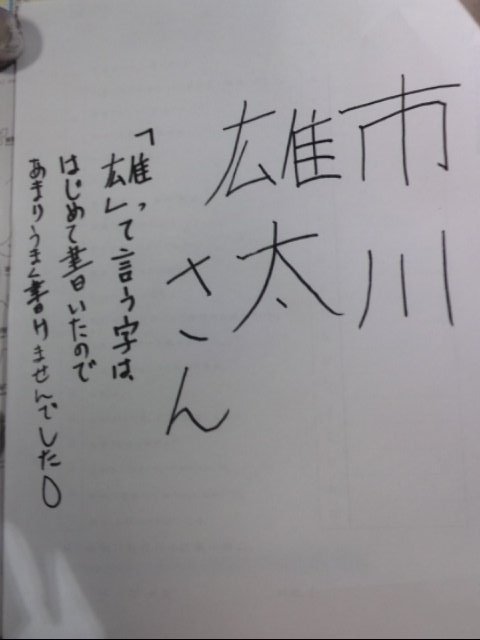 市川
雄太
さん
「雄」って言う字は、
はじめて書いたので
あまりうまく書けませんでした。